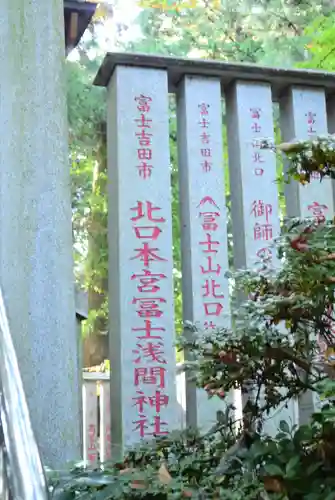 富士吉田市 北口本宮冨士浅間神社
富士吉田市 (冨士山北口
富士山北口 御師の
富士